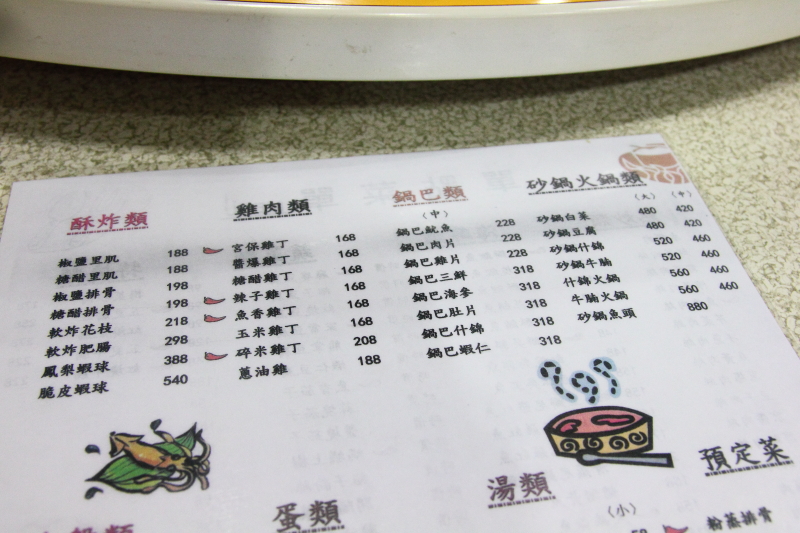 酥炸類
椒鹽里肌 188
糖醋里肌 188
椒鹽排骨 198
糖醋排骨 198
軟炸花枝 218
軟炸肥腸 298
鳳梨蝦球 388
脆皮蝦球 540
雞肉類
宮保雞丁 168
醬爆雞丁 168
糖醋雞丁 168
辣子雞丁 168
魚香雞丁 168
玉米雞丁 168
碎米雞丁 208
蔥油雞 188
鍋巴類
(中)
鍋巴魷魚 228
鍋巴肉片 228
鍋巴雞片 228
鍋巴三鮮 318
鍋巴海參 318
鍋巴肚片 318
鍋巴什錦 318
鍋巴蝦仁 318
砂鍋火鍋類
(大) (中)
砂鍋白菜 480 420
砂鍋豆腐 480 420
砂鍋什錦 520 460
砂鍋牛腩 520 460
什錦火鍋 560 460
牛腩火鍋 560 460
砂鍋魚頭 880
蛋類
湯類
(小)
預定菜
粉蒸排骨